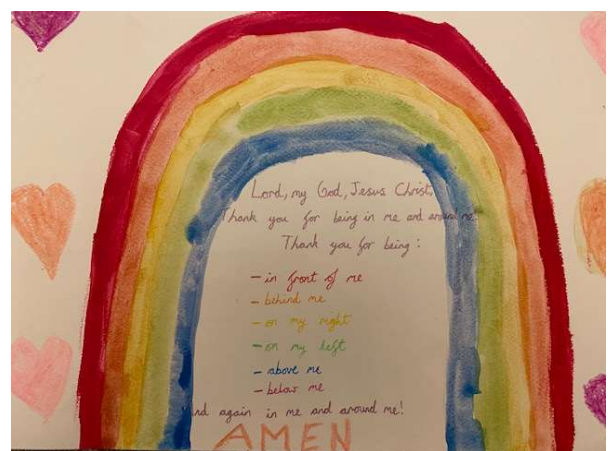 Lord, my God, Jesus Christ,
Thank you for being in me and around me.
Thank you for being:
- in front of me
- behind me
- on my right
- on my left
- above me
- below me
And again in me and around me!
AMEN